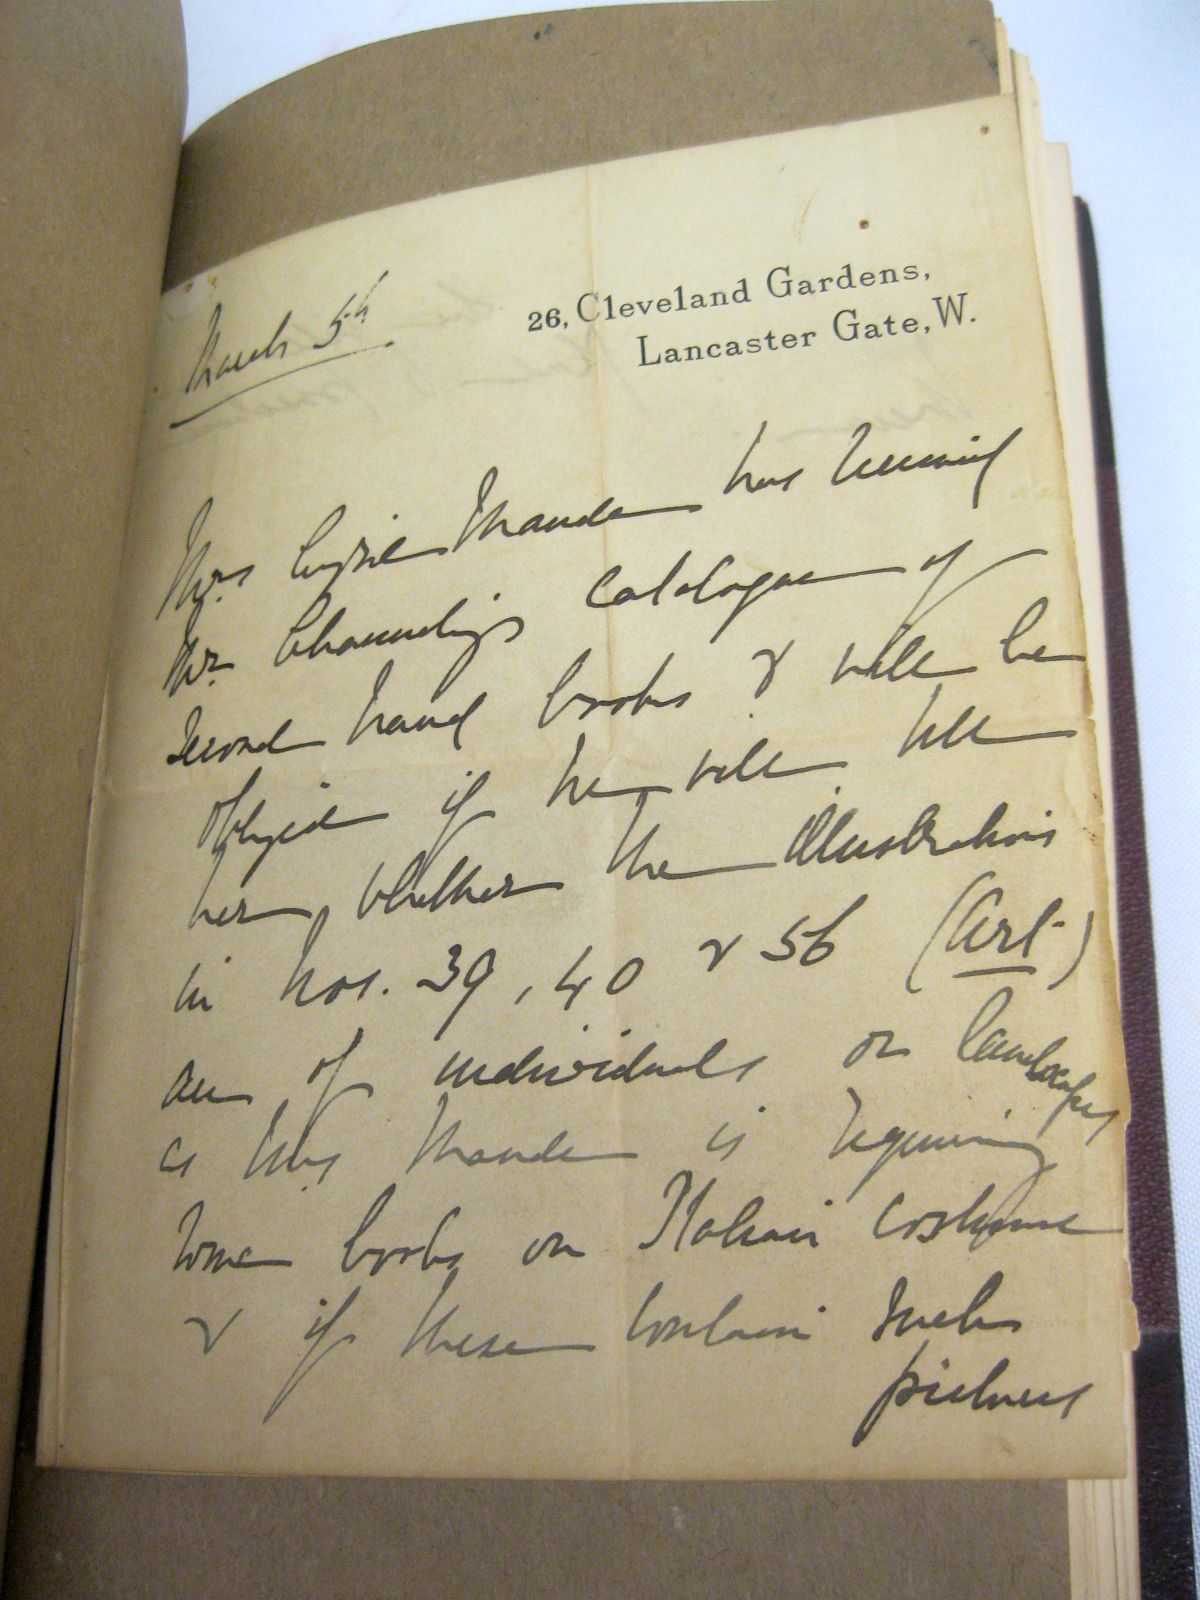 26, Cleveland Gardens,
Lancaster Gate, W.
March 5th
Mrs Cyril Maude has received
Mr. catalogue of
second hand books & will be
obliged if he will tell
her whether the illustrations
in Nos. 39, 40 & 56 (Art)
are of individuals or landscapes
as Mrs Maude is requiring
some books on Italian costume
& if these contain such
pictures